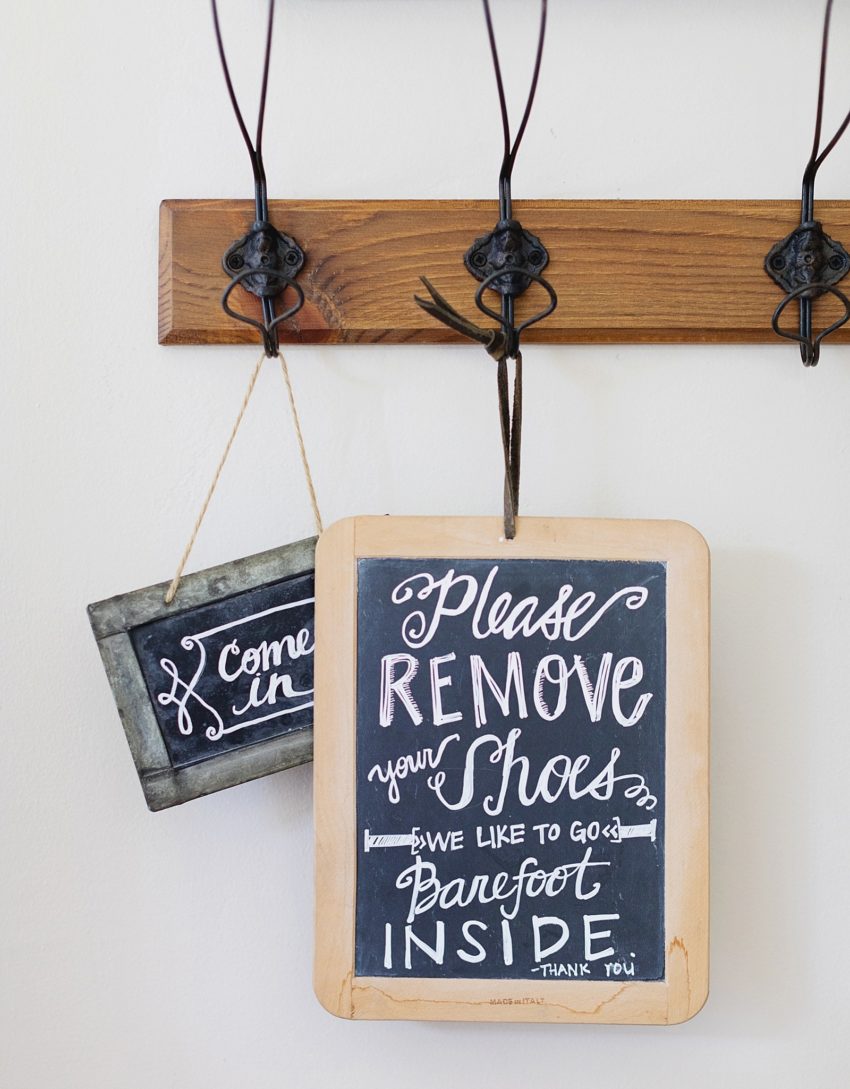 Come
in
Please
REMOVE
your Shoes
WE LIKE TO GO
Barefoot
INSIDE.
-THANK YOU
MADE IN ITALY